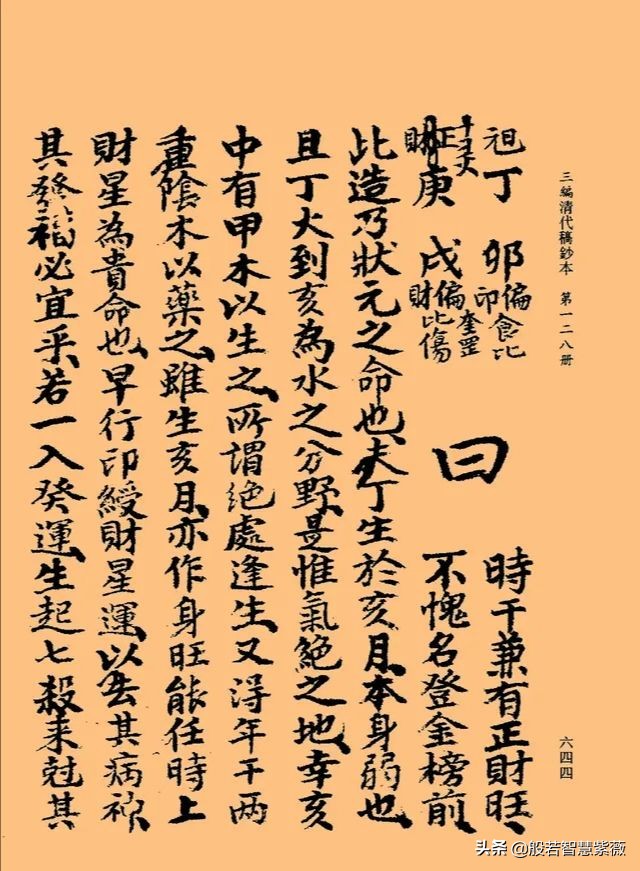 三編清代稿鈔本 第一二八册
六四四
丁 卯 偏印 食比 時干兼有正財旺
正財 庚 戌 偏財 比傷 奎罡 曰 不愧名登金榜前
此造乃狀元之命也夫丁生於亥月本身弱也
且丁火到亥為水之分野是惟氣絕之地幸亥
中有甲木以生之所謂絕處逢生又淂年干兩
重陰木以藥之雖生亥月亦作身旺能任時上
財星為貴命也早行印綬財星運以去其病祿
其發福必宜乎若一入癸運生起七殺来尅其
头条 @般若智慧紫薇